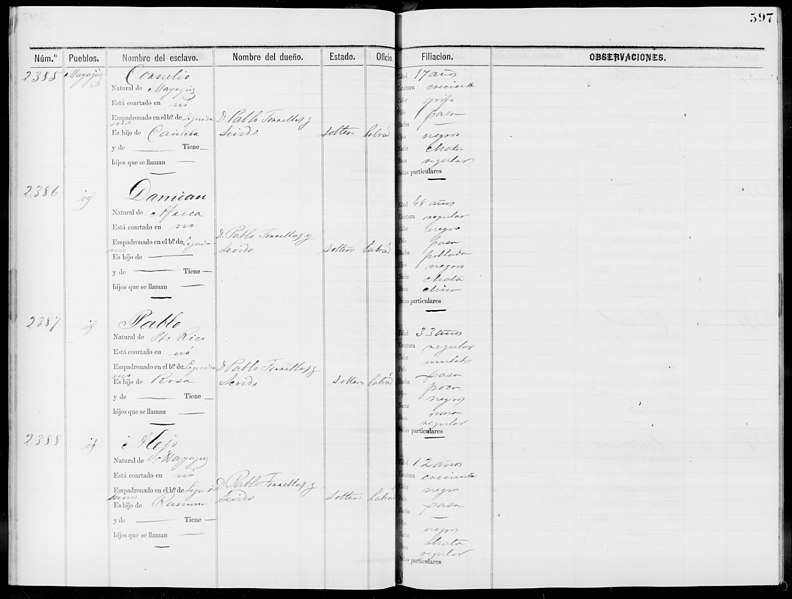 597
Núm.º Pueblos. Nombre del esclavo. Nombre del dueño. Estado. Oficio. Filiacion. OBSERVACIONES.
2385 Mayagüez Cornelio
Natural de Mayagüez
Está coartado en no
Empadronado en el bº. de
Es hijo de
y de — Tiene —
hijos que se llaman —
D. Pablo
Soltero Labra
Edad 17 años
Estatura creciente
Color grifo
Pelo pasa
Barba —
Ojos negros
Nariz chata
Boca regular
Señas particulares —
2386 id Damian
Natural de Africa
Está coartado en no
Empadronado en el bº. de
Es hijo de —
y de — Tiene —
hijos que se llaman —
D. Pablo
Soltero Labra
Edad 48 años
Estatura regular
Color negro
Pelo pasa
Barba poblada
Ojos negros
Nariz chata
Boca chica
Señas particulares —
2387 id Pablo
Natural de Pto Rico
Está coartado en no
Empadronado en el bº. de
Es hijo de Rosa
y de — Tiene —
hijos que se llaman —
D. Pablo
Soltero Labra
Edad 33 años
Estatura regular
Color mulato
Pelo pasa
Barba poca
Ojos negros
Boca regular
Señas particulares —
2388 id Alejo
Natural de Mayagüez
Está coartado en no
Empadronado en el bº. de
Es hijo de Ramona
y de — Tiene —
hijos que se llaman —
D. Pablo
Soltero Labra
Edad 12 años
Estatura creciente
Color negro
Pelo pasa
Barba —
Ojos negros
Nariz chata
Boca regular
Señas particulares